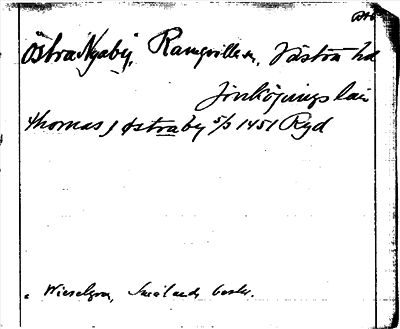 Östra Nyaby, Ramqvilla sn, Västra hd
Jönköpings län
Thomas j østraby 5/3 1451 Ryd
Wieselgren, Smålands beskr.